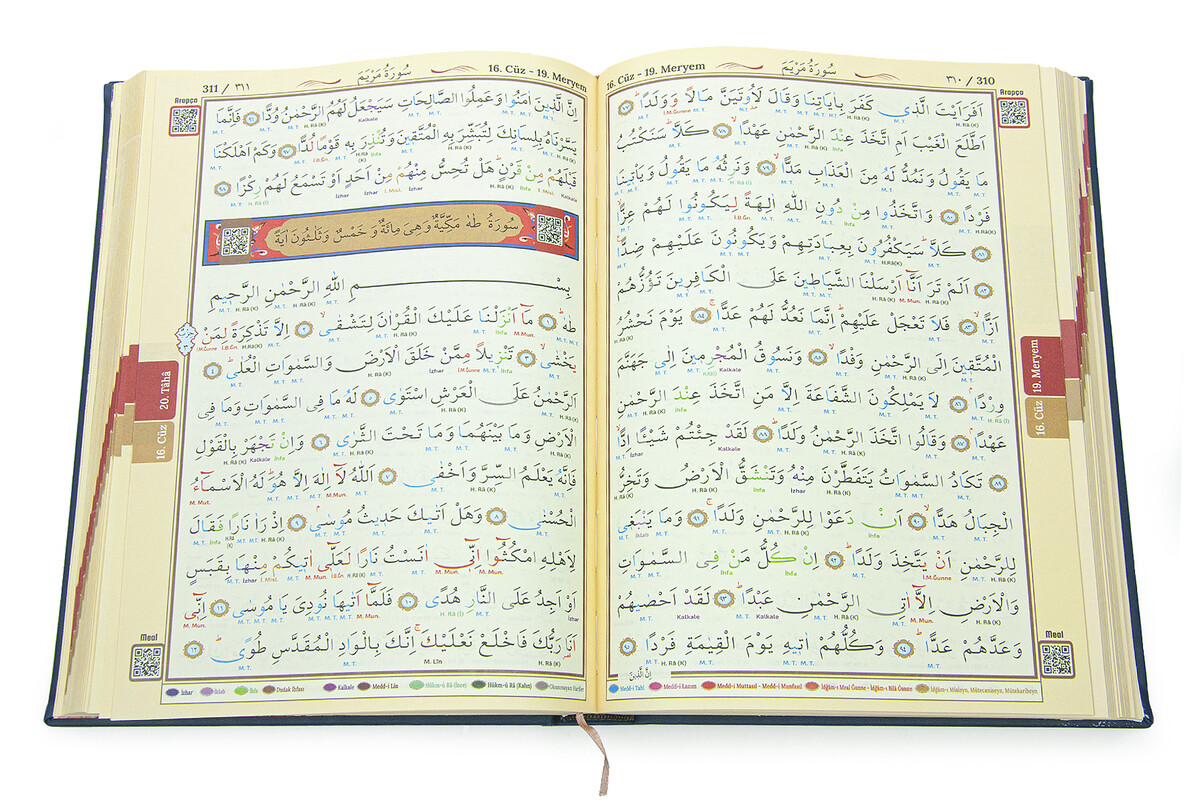 16. Cüz - 19. Meryem سُورَةُ مَرْيَمَ ٣١٠ / 310
Arapça
اَفَرَاَيْتَ الَّذ۪ي كَفَرَ بِاٰيَاتِنَا وَقَالَ لَاُو۫تَيَنَّ مَالًا وَوَلَدًاۜ ﴿٧٧﴾
اَطَّلَعَ الْغَيْبَ اَمِ اتَّخَذَ عِنْدَ الرَّحْمٰنِ عَهْدًاۙ ﴿٧٨﴾ كَلَّاۜ سَنَكْتُبُ
مَا يَقُولُ وَنَمُدُّ لَهُ مِنَ الْعَذَابِ مَدًّاۙ ﴿٧٩﴾ وَنَرِثُهُ مَا يَقُولُ وَيَأْت۪ينَا
فَرْدًا ﴿٨٠﴾ وَاتَّخَذُوا مِنْ دُونِ اللّٰهِ اٰلِهَةً لِيَكُونُوا لَهُمْ عِزًّاۙ
﴿٨١﴾ كَلَّاۜ سَيَكْفُرُونَ بِعِبَادَتِهِمْ وَيَكُونُونَ عَلَيْهِمْ ضِدًّا۟
﴿٨٢﴾ اَلَمْ تَرَ اَنَّٓا اَرْسَلْنَا الشَّيَاط۪ينَ عَلَى الْكَافِر۪ينَ تَؤُزُّهُمْ
اَزًّاۙ ﴿٨٣﴾ فَلَا تَعْجَلْ عَلَيْهِمْۜ اِنَّمَا نَعُدُّ لَهُمْ عَدًّاۚ ﴿٨٤﴾ يَوْمَ نَحْشُرُ
الْمُتَّق۪ينَ اِلَى الرَّحْمٰنِ وَفْدًاۙ ﴿٨٥﴾ وَنَسُوقُ الْمُجْرِم۪ينَ اِلٰى جَهَنَّمَ
وِرْدًاۢ ﴿٨٦﴾ لَا يَمْلِكُونَ الشَّفَاعَةَ اِلَّا مَنِ اتَّخَذَ عِنْدَ الرَّحْمٰنِ
عَهْدًاۢ ﴿٨٧﴾ وَقَالُوا اتَّخَذَ الرَّحْمٰنُ وَلَدًاۜ ﴿٨٨﴾ لَقَدْ جِئْتُمْ شَيْـًٔا اِدًّاۙ
﴿٨٩﴾ تَكَادُ السَّمٰوَاتُ يَتَفَطَّرْنَ مِنْهُ وَتَنْشَقُّ الْاَرْضُ وَتَخِرُّ
الْجِبَالُ هَدًّاۙ ﴿٩٠﴾ اَنْ دَعَوْا لِلرَّحْمٰنِ وَلَدًاۚ ﴿٩١﴾ وَمَا يَنْبَغ۪ي
لِلرَّحْمٰنِ اَنْ يَتَّخِذَ وَلَدًاۜ ﴿٩٢﴾ اِنْ كُلُّ مَنْ فِي السَّمٰوَاتِ
وَالْاَرْضِ اِلَّٓا اٰتِي الرَّحْمٰنِ عَبْدًاۜ ﴿٩٣﴾ لَقَدْ اَحْصٰيهُمْ
وَعَدَّهُمْ عَدًّاۜ ﴿٩٤﴾ وَكُلُّهُمْ اٰت۪يهِ يَوْمَ الْقِيٰمَةِ فَرْدًا ﴿٩٥﴾
اِنَّ الَّذ۪ينَ
Meal
19. Meryem
16. Cüz
Medd-i Tabî Medd-i Lazım Medd-i Muttasıl - Medd-i Munfasıl İdğam-ı Meal Ğunne - İdğam-ı Bilâ Ğunne İdğam-ı Misleyn, Mütecaniseyn, Mütekaribeyn
311 / ٣١١ سُورَةُ مَرْيَمَ 16. Cüz - 19. Meryem
Arapça
اِنَّ الَّذ۪ينَ اٰمَنُوا وَعَمِلُوا الصَّالِحَاتِ سَيَجْعَلُ لَهُمُ الرَّحْمٰنُ وُدًّا ﴿٩٦﴾ فَاِنَّمَا
يَسَّرْنَاهُ بِلِسَانِكَ لِتُبَشِّرَ بِهِ الْمُتَّق۪ينَ وَتُنْذِرَ بِه۪ قَوْمًا لُدًّا ﴿٩٧﴾ وَكَمْ اَهْلَكْنَا
قَبْلَهُمْ مِنْ قَرْنٍۜ هَلْ تُحِسُّ مِنْهُمْ مِنْ اَحَدٍ اَوْ تَسْمَعُ لَهُمْ رِكْزًا ﴿٩٨﴾
سُورَةُ طٰهٰ مَكِّيَّةٌ وَهِيَ مِائَةٌ وَ خَمْسٌ وَثَلٰثُونَ اٰيَةً
بِسْــــــمِ اللّٰهِ الرَّحْمٰنِ الرَّح۪يمِ
طٰهٰۜ ﴿١﴾ مَٓا اَنْزَلْنَا عَلَيْكَ الْقُرْاٰنَ لِتَشْقٰىۙ ﴿٢﴾ اِلَّا تَذْكِرَةً لِمَنْ
يَخْشٰىۙ ﴿٣﴾ تَنْز۪يلًا مِمَّنْ خَلَقَ الْاَرْضَ وَالسَّمٰوَاتِ الْعُلٰىۜ ﴿٤﴾
اَلرَّحْمٰنُ عَلَى الْعَرْشِ اسْتَوٰى ﴿٥﴾ لَهُ مَا فِي السَّمٰوَاتِ وَمَا فِي
الْاَرْضِ وَمَا بَيْنَهُمَا وَمَا تَحْتَ الثَّرٰى ﴿٦﴾ وَاِنْ تَجْهَرْ بِالْقَوْلِ
فَاِنَّهُ يَعْلَمُ السِّرَّ وَاَخْفٰى ﴿٧﴾ اَللّٰهُ لَٓا اِلٰهَ اِلَّا هُوَۜ لَهُ الْاَسْمَٓاءُ
الْحُسْنٰى ﴿٨﴾ وَهَلْ اَتٰيكَ حَد۪يثُ مُوسٰىۢ ﴿٩﴾ اِذْ رَاٰ نَارًا فَقَالَ
لِاَهْلِهِ امْكُثُٓوا اِنّ۪ٓي اٰنَسْتُ نَارًا لَعَلّ۪ٓي اٰت۪يكُمْ مِنْهَا بِقَبَسٍ
اَوْ اَجِدُ عَلَى النَّارِ هُدًى ﴿١٠﴾ فَلَمَّٓا اَتٰيهَا نُودِيَ يَا مُوسٰىۜ ﴿١١﴾ اِنّ۪ٓي
اَنَا۬ رَبُّكَ فَاخْلَعْ نَعْلَيْكَۚ اِنَّكَ بِالْوَادِ الْمُقَدَّسِ طُوًىۜ ﴿١٢﴾
Meal
20. Tâhâ
16. Cüz
İzhar İklab İhfa Dudak İhfası Kalkale Medd-i Lin Hükm-ü Râ (İnce) Hükm-ü Râ (Kalın) Okunmayan Harfler